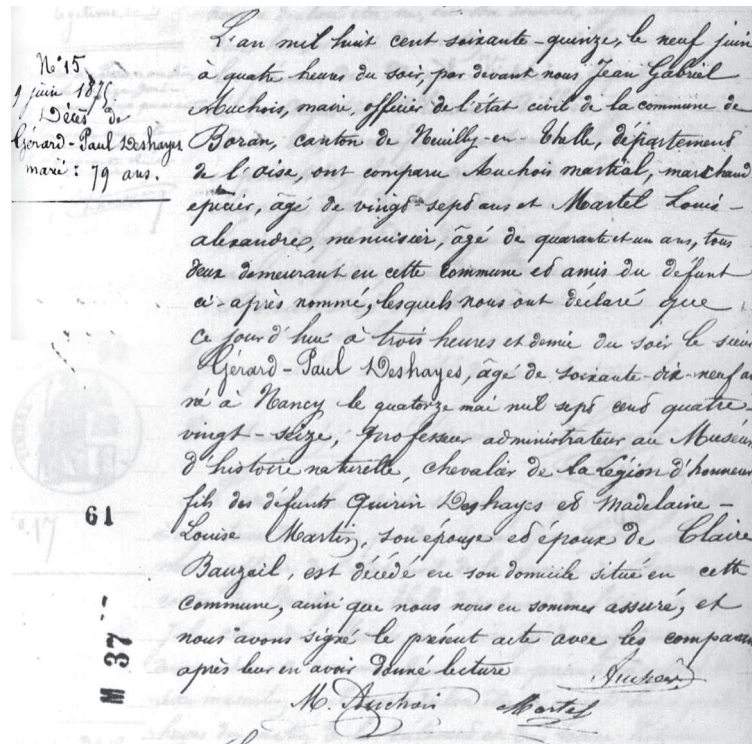 L'an mil huit cent soixante-quinze, le neuf juin
à quatre heures du soir, par devant nous Jean Gabriel
Auchois, maire, officier de l'état civil de la commune de
Boran, canton de Neuilly-en-Thelle, département
de l'Oise, ont comparu Auchois martial, marchand
épicier, âgé de vingt-sept ans et Martel Louis-
alexandre, menuisier, âgé de quarante et un ans, tous
deux demeurant en cette commune et amis du défunt
ci-après nommé, lesquels nous ont déclaré que
ce jour d'hui à trois heures et demie du soir le sieur
Gérard-Paul Deshayes, âgé de soixante-dix-neuf an
né à Nancy le quatorze mai mil sept cent quatre-
vingt-seize, Professeur administrateur au Muséum
d'histoire naturelle, chevalier de la légion d'honneur
fils des défunts Quirin Deshayes et Madelaine-
Louise Martin, son épouse et époux de Claire
Bauzeil, est décédé en son domicile situé en cette
commune, ainsi que nous nous en sommes assuré, et
nous avons signé le présent acte avec les comparan
après leur en avoir donné lecture
Auchois
M. Auchois Martel
N° 15
9 juin 1875
Décès de
Gérard-Paul Deshayes
marié : 79 ans.
61
M 37